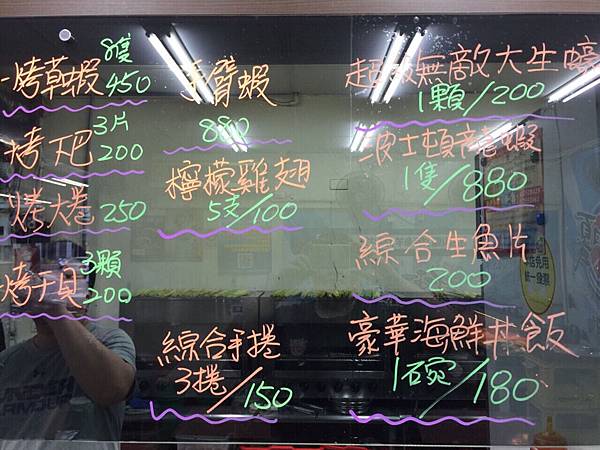 8隻
烤草蝦 450
3片
烤下巴 200
烤大卷 250
3顆
烤干貝 200
手臂蝦
880
檸檬雞翅
5支/100
綜合手捲
3捲/150
超級無敵大生蠔
1顆/200
波士頓龍蝦
1隻/880
綜合生魚片
200
豪華海鮮丼飯
1碗/180
免用
統一發票